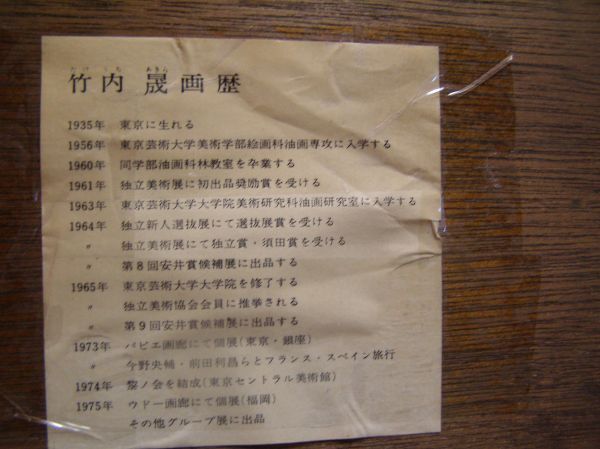 たけ うち あきら
竹内 晟画歴
1935年 東京に生れる
1956年 東京芸術大学美術学部絵画科油画専攻に入学する
1960年 同学部油画科林教室を卒業する
1961年 独立美術展に初出品奨励賞を受ける
1963年 東京芸術大学大学院美術研究科油画研究室に入学する
1964年 独立新人選抜展にて選抜展賞を受ける
〃 独立美術展にて独立賞・須田賞を受ける
〃 第8回安井賞候補展に出品する
1965年 東京芸術大学大学院を修了する
〃 独立美術協会会員に推挙される
〃 第9回安井賞候補展に出品する
1973年 パピエ画廊にて個展(東京・銀座)
〃 今野央輔・前田利昌らとフランス・スペイン旅行
1974年 黎ノ会を結成(東京セントラル美術館)
1975年 ウドー画廊にて個展(福岡)
その他グループ展に出品